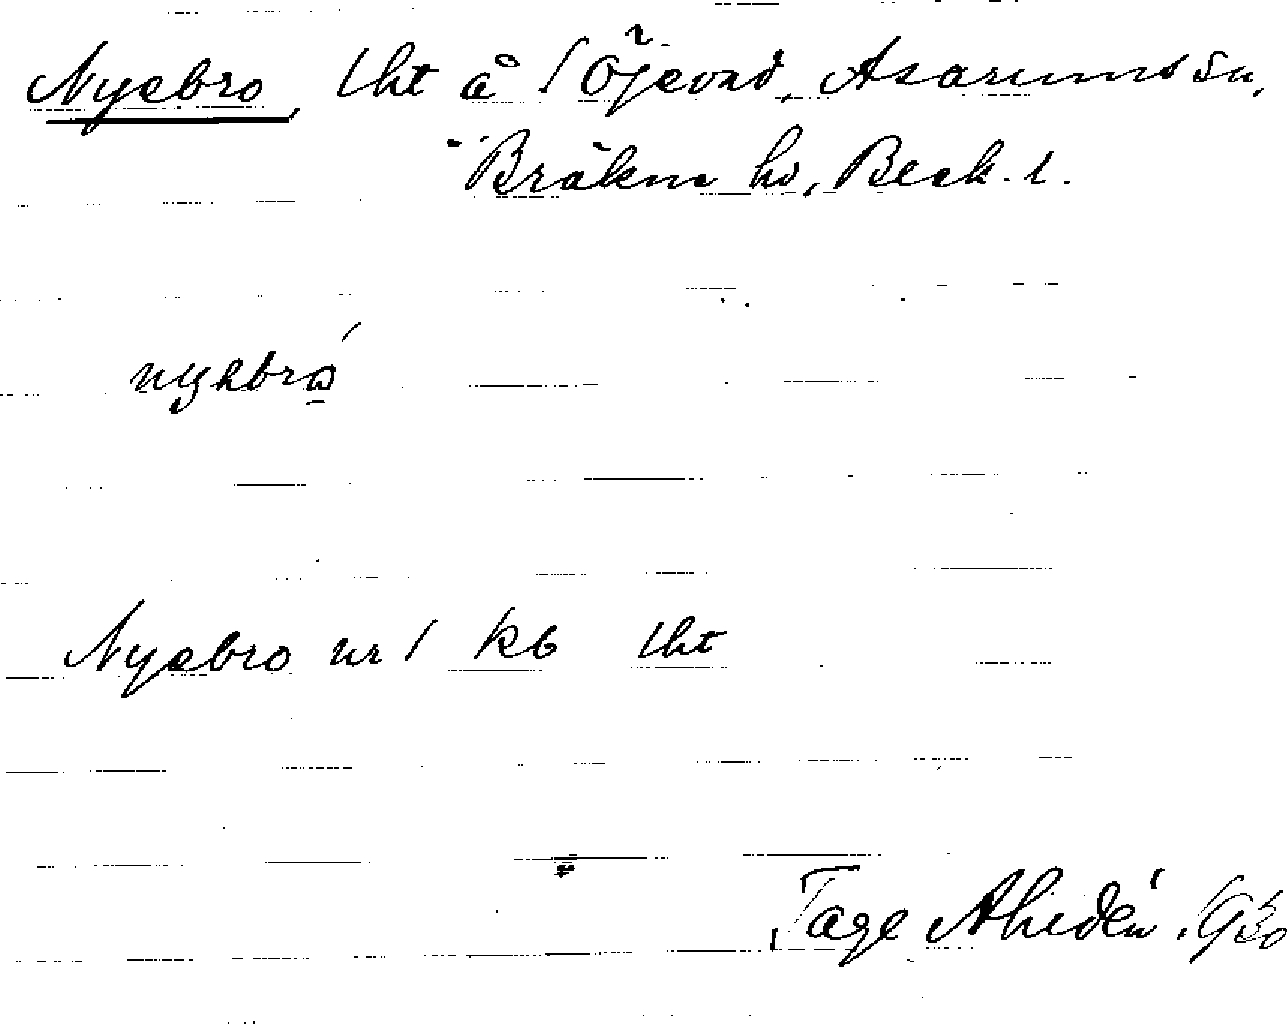 Nyebro, lht å 1 Öjevad, Asarums sn,
Bräkne hd, Blek. l.
nyebro
Nyebro nr 1 kb lht
Tage Ahldén 1930